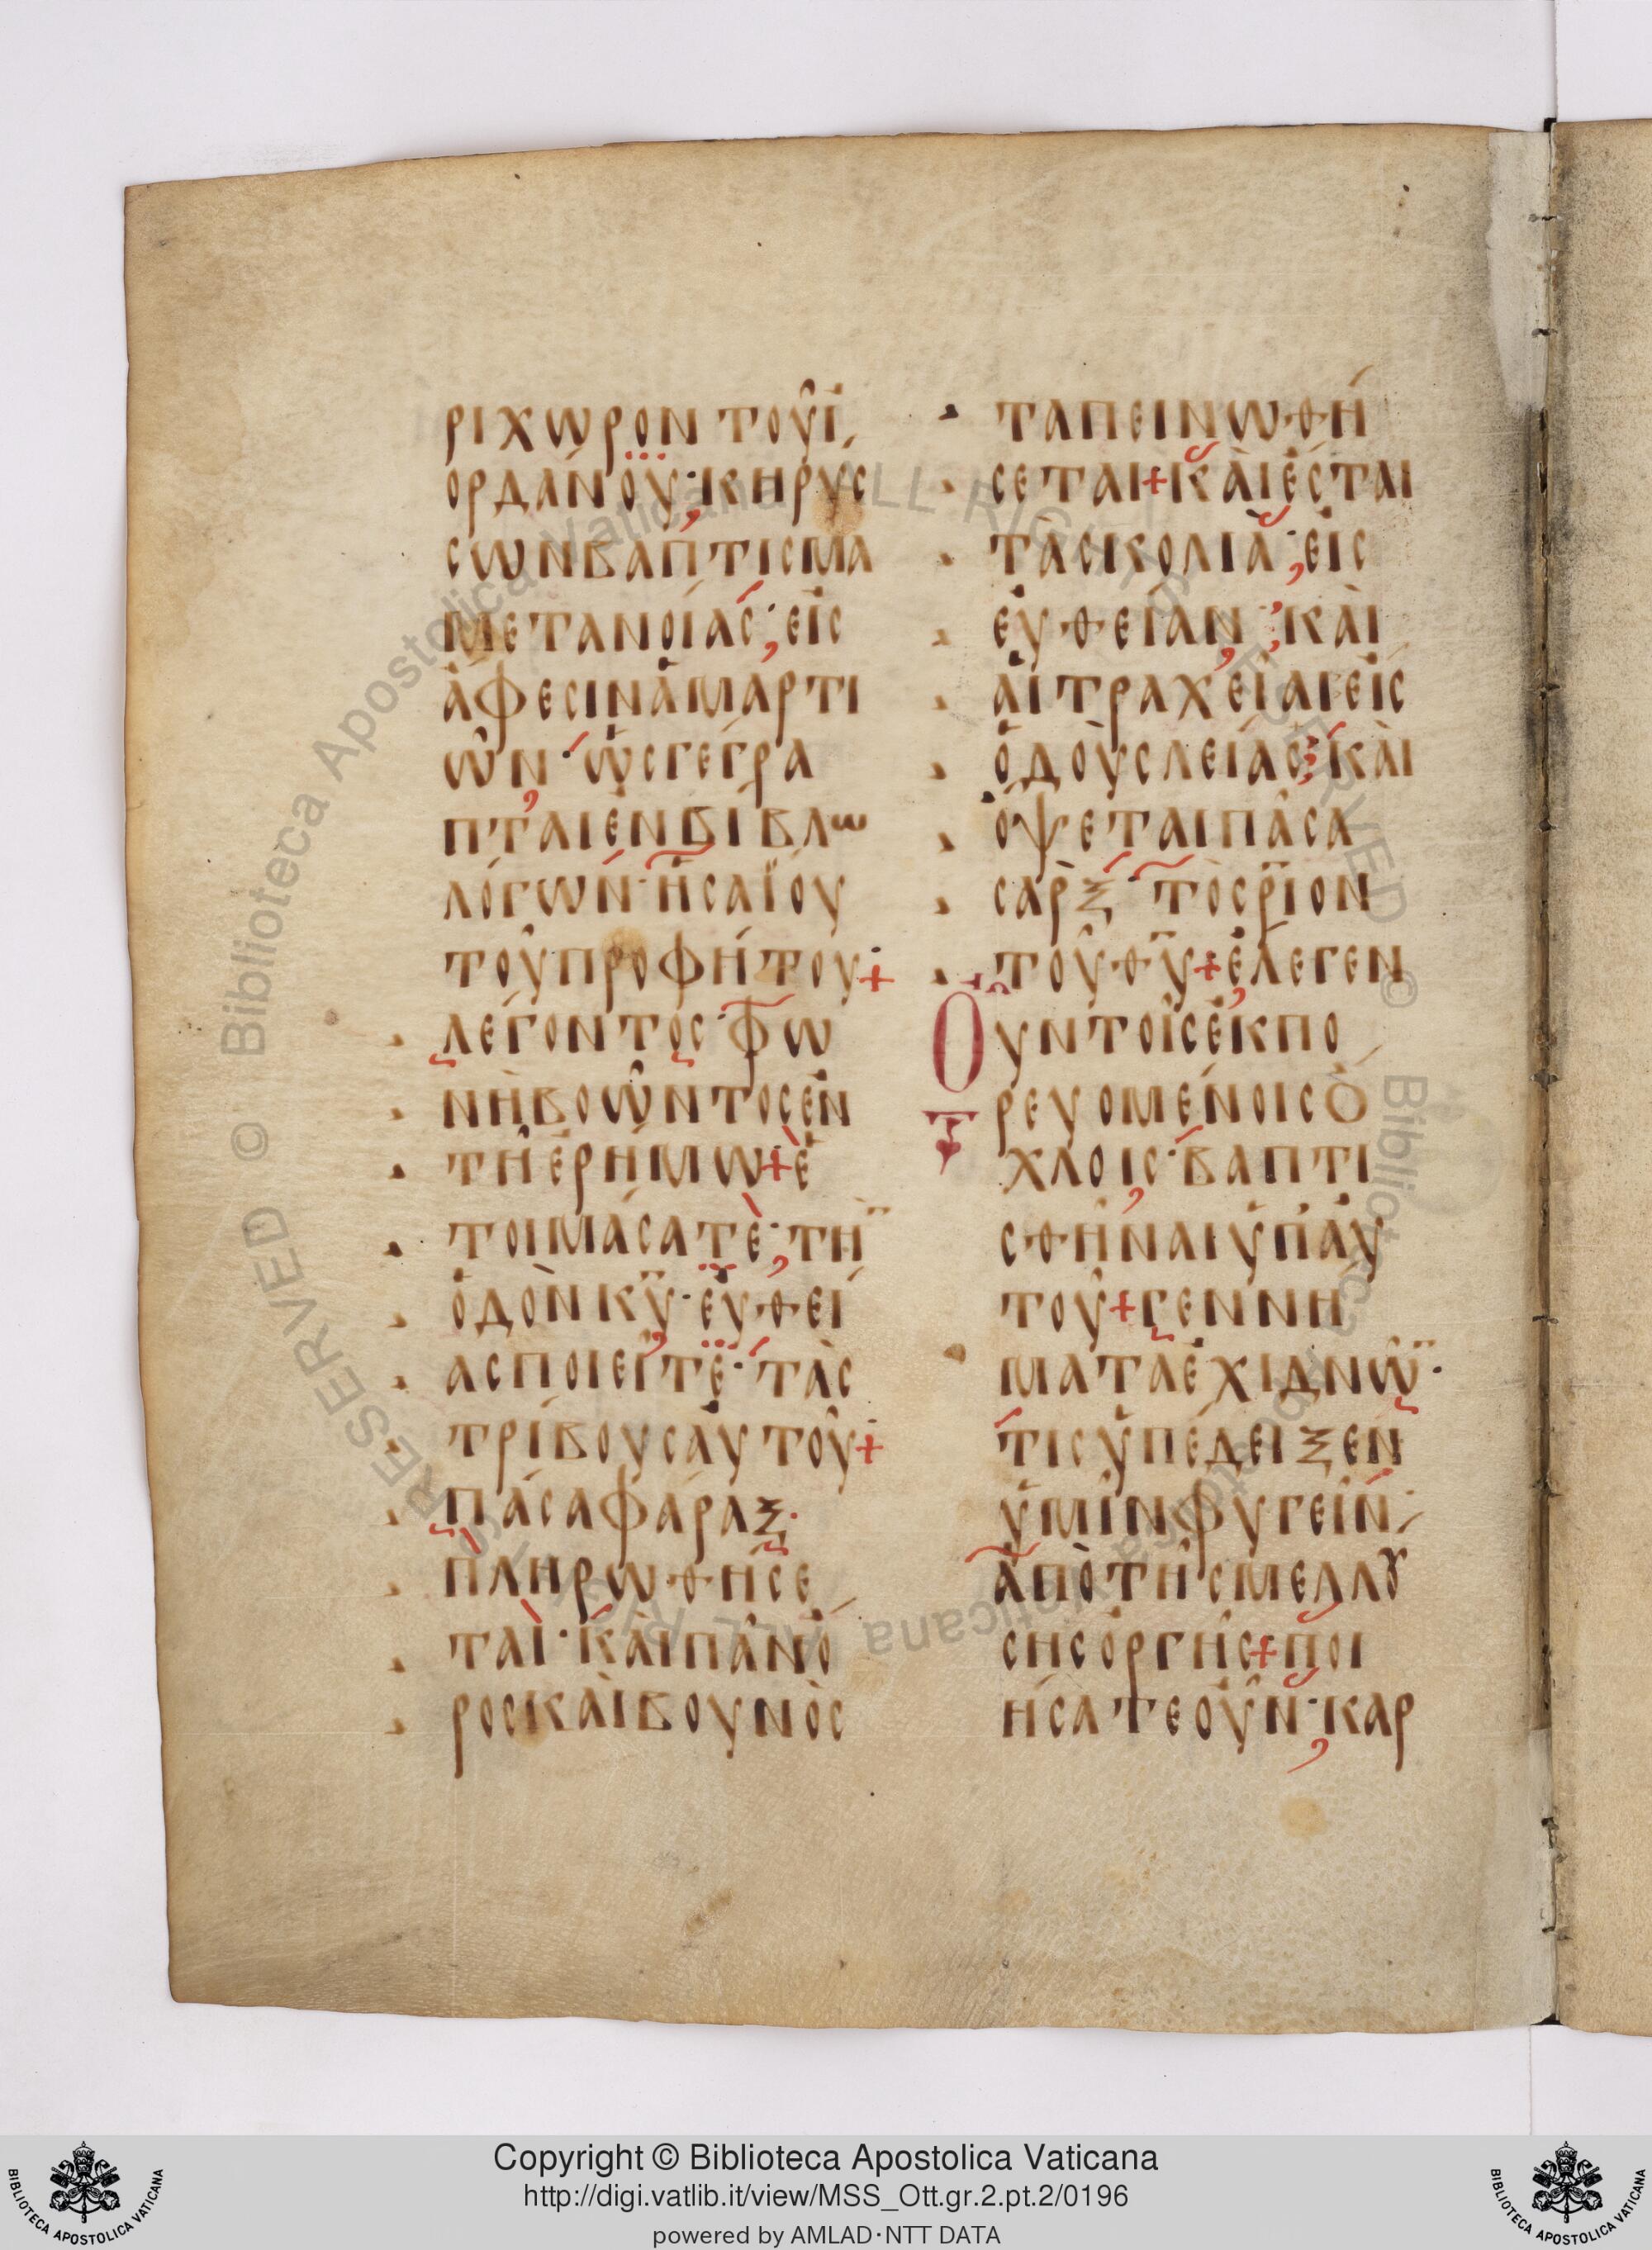 ριχωρον τοῦ ἰ
ορδάνου· κηρύς
σων βάπτισμα
μετανοίας· εἰς
ἄφεσιν ἁμαρτι
ῶν· ὡς γέγρα
πται ἐν βίβλω
λόγων· ἡσαΐου
τοῦ προφήτου+
λέγοντος· φω
νὴ βοῶντος ἐν
τῆ ἐρήμω+ ἑ
τοιμάσατε· τὴ
ὁδὸν κυ· εὐθεί
ας ποιεῖτε· τὰς
τρίβους αὐτοῦ+
πᾶσα φάραξ·
πληρωθήσε
ται· καὶ πᾶν ὄ
ρος καὶ βουνὸς
ταπεινωθή
σεται+ καὶ ἔσται
τὰ σκολιὰ· εἰς
εὐθεῖαν· καὶ
αἱ τραχεῖαι εἰς
ὁδοὺς λείας· καὶ
ὄψεται πᾶσα
σὰρξ· τὸ σριον
τοῦ θυ+ ἔλεγεν
Οὖν τοῖς ἐκπο
ρευομένοις ὄ
χλοις· βαπτι
σθῆναι ὑπ' αὐ
τοῦ+ γεννή
ματα ἐχιδνῶ·
τίς ὑπέδειξεν
ὑμῖν φυγεῖν·
ἀπὸ τῆς μελλού
σης ὀργῆς+ ποι
ήσατε οὖν· καρ
Copyright © Biblioteca Apostolica Vaticana
http://digi.vatlib.it/view/MSS_Ott.gr.2.pt.2/0196
powered by AMLAD·NTT DATA
BIBLIOTECA APOSTOLICA VATICANA
BIBLIOTECA APOSTOLICA VATICANA